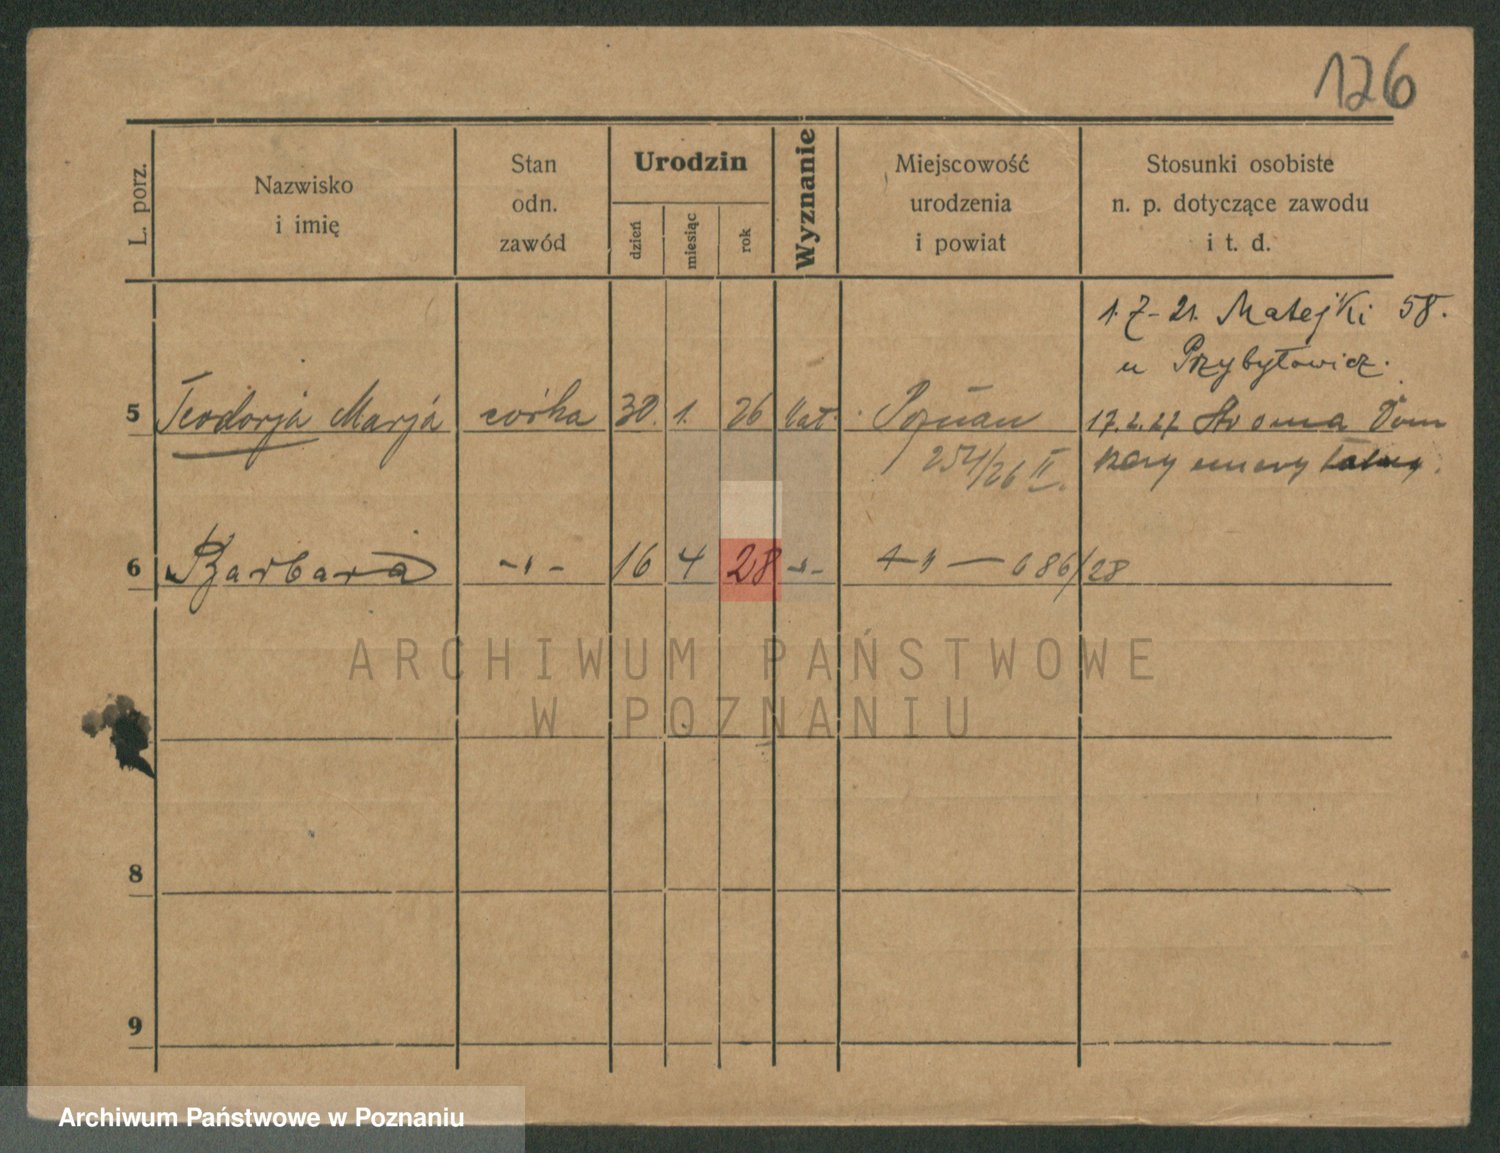 126
L. porz.
Nazwisko
i imię
Stan
odn.
zawód
Urodzin
dzień
miesiąc
rok
Wyznanie
Miejscowość
urodzenia
i powiat
Stosunki osobiste
n. p. dotyczące zawodu
i t. d.
1. 7 - 21. Matejki 58.
u Przybyłowicz.
5 Teodorja Marja córka 30. 1. 26 kat. Poznań 17.2.27 Dom
254/26 II.
6 Barbara -"- 16 4 28 -"- -"- 686/28
ARCHIWUM PAŃSTWOWE
W POZNANIU
8
9
Archiwum Państwowe w Poznaniu